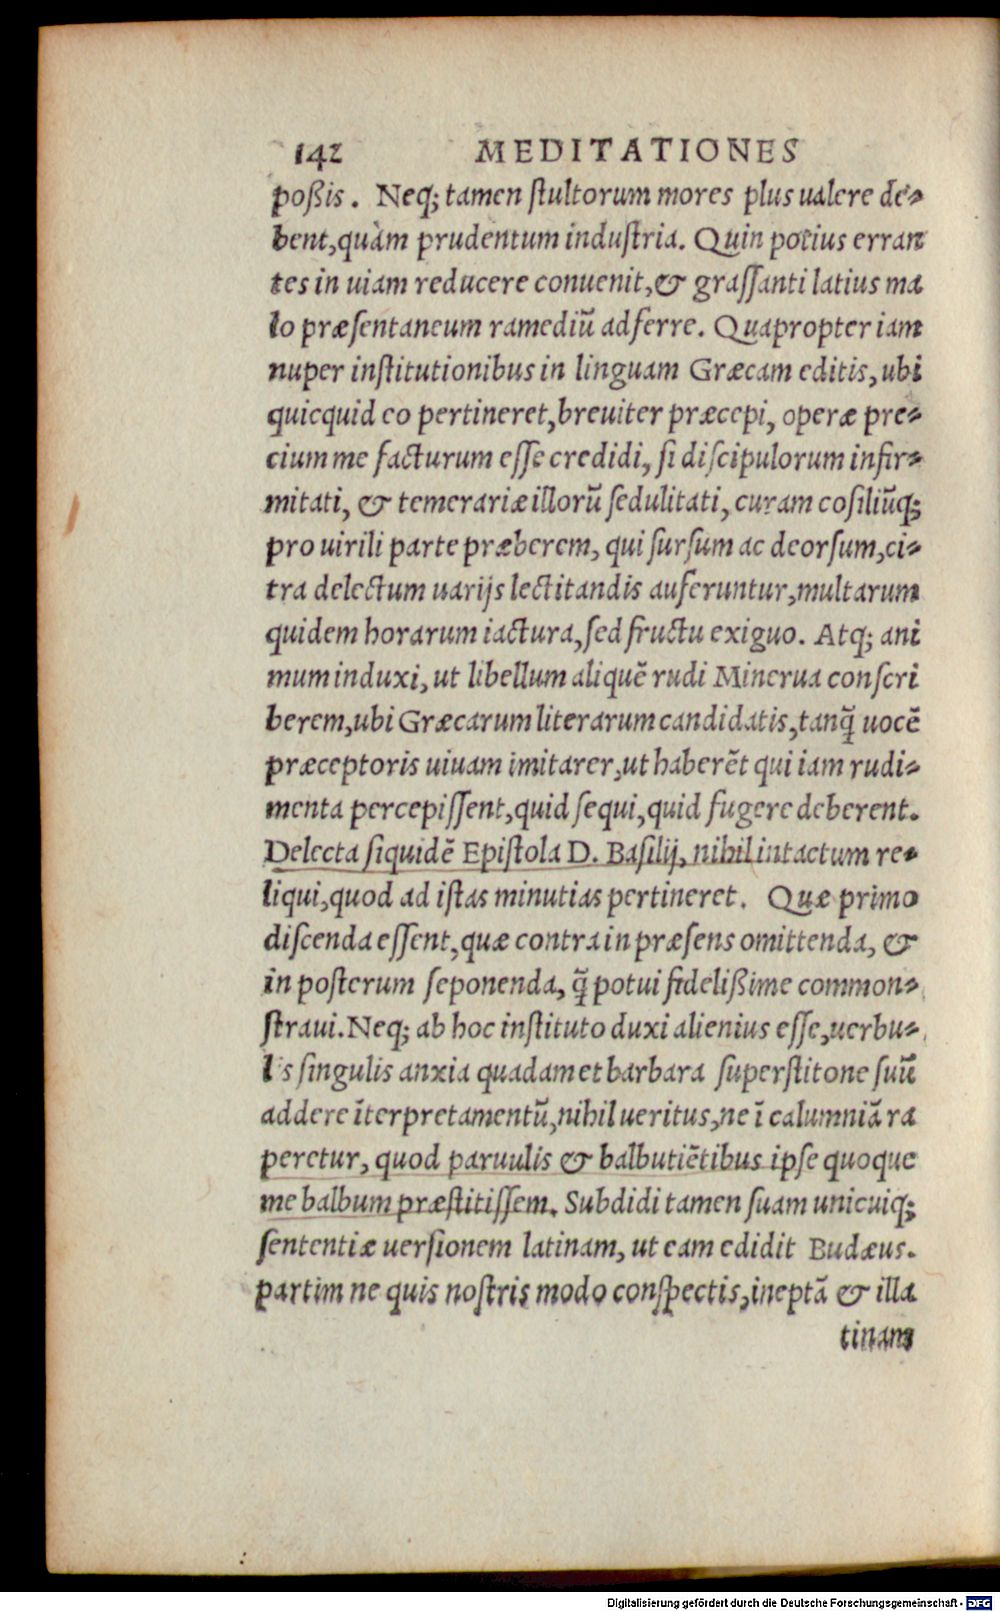 142 MEDITATIONES
poßis. Neq; tamen ſtultorum mores plus ualere de-
bent, quàm prudentum induſtria. Quin potius erran
tes in uiam reducere conuenit, & graſſanti latius ma
lo præſentaneum ramediũ adferre. Quapropter iam
nuper inſtitutionibus in linguam Græcam editis, ubi
quicquid eo pertineret, breuiter præcepi, operæ pre-
cium me facturum eſſe credidi, ſi diſcipulorum infir-
mitati, & temerariæ illorũ ſedulitati, curam coſiliũq;
pro uirili parte præberem, qui ſurſum ac deorſum, ci-
tra delectum uarijs lectitandis auferuntur, multarum
quidem horarum iactura, ſed fructu exiguo. Atq; ani
mum induxi, ut libellum aliquẽ rudi Minerua conſcri
berem, ubi Græcarum literarum candidatis, tanq̃ uocẽ
præceptoris uiuam imitarer, ut haberẽt qui iam rudi-
menta percepiſſent, quid ſequi, quid fugere deberent.
Delecta ſiquidẽ Epiſtola D. Baſilij, nihil intactum re-
liqui, quod ad iſtas minutias pertineret. Quæ primo
diſcenda eſſent, quæ contra in præſens omittenda, &
in poſterum ſeponenda, q̃ potui fideliſſime common-
ſtraui. Neq; ab hoc inſtituto duxi alienius eſſe, uerbu-
lis ſingulis anxia quadam et barbara ſuperſtitone ſuũ
addere ĩterpretamentũ, nihil ueritus, ne ĩ calumniã ra
peretur, quod paruulis & balbutiẽtibus ipſe quoque
me balbum præſtitiſſem. Subdidi tamen ſuam unicuiq;
ſententiæ uerſionem latinam, ut eam edidit Budæus.
partim ne quis noſtris modo conſpectis, ineptã & illa
tinam
Digitalisierung gefördert durch die Deutsche Forschungsgemeinschaft - DFG